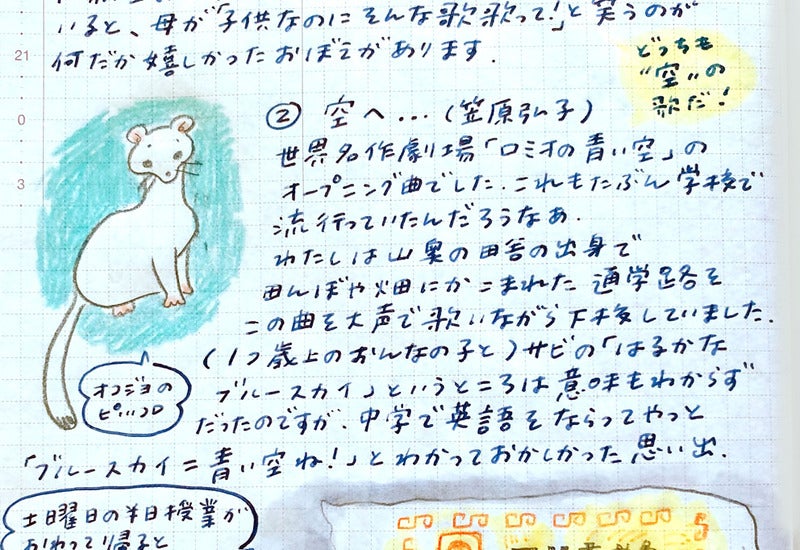 いると、母が「子供なのにそんな歌歌って!」と笑うのが
何だか嬉しかったおぼえがあります.
どっちも
"空"の
歌だ!
② 空へ…(笠原弘子)
世界名作劇場「ロミオの青い空」の
オープニング曲でした.これもたぶん学校で
流行っていたんだろうなあ.
わたしは山奥の田舎の出身で
田んぼや畑にかこまれた通学路を
この曲を大声で歌いながら下校していました.
(1つ歳上のおんなの子と)サビの「はるかな
ブルースカイ」というところは意味もわからず
だったのですが.中学で英語をならってやっと
「ブルースカイ=青い空ね!」とわかっておかしかった思い出.
オコジョの
ピッコロ
土曜日の半日授業が
おわって帰ると
21
0
3